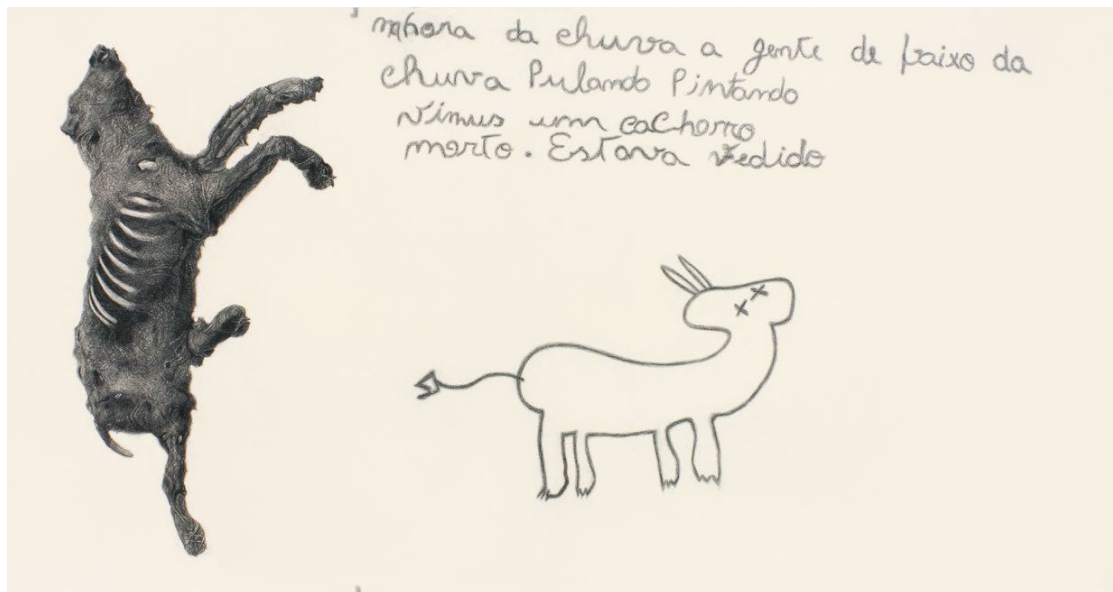 nahora da chuva a gente de baixo da
chuva Pulando Pintando
vimus umm cachorro
morto. Estava vedido